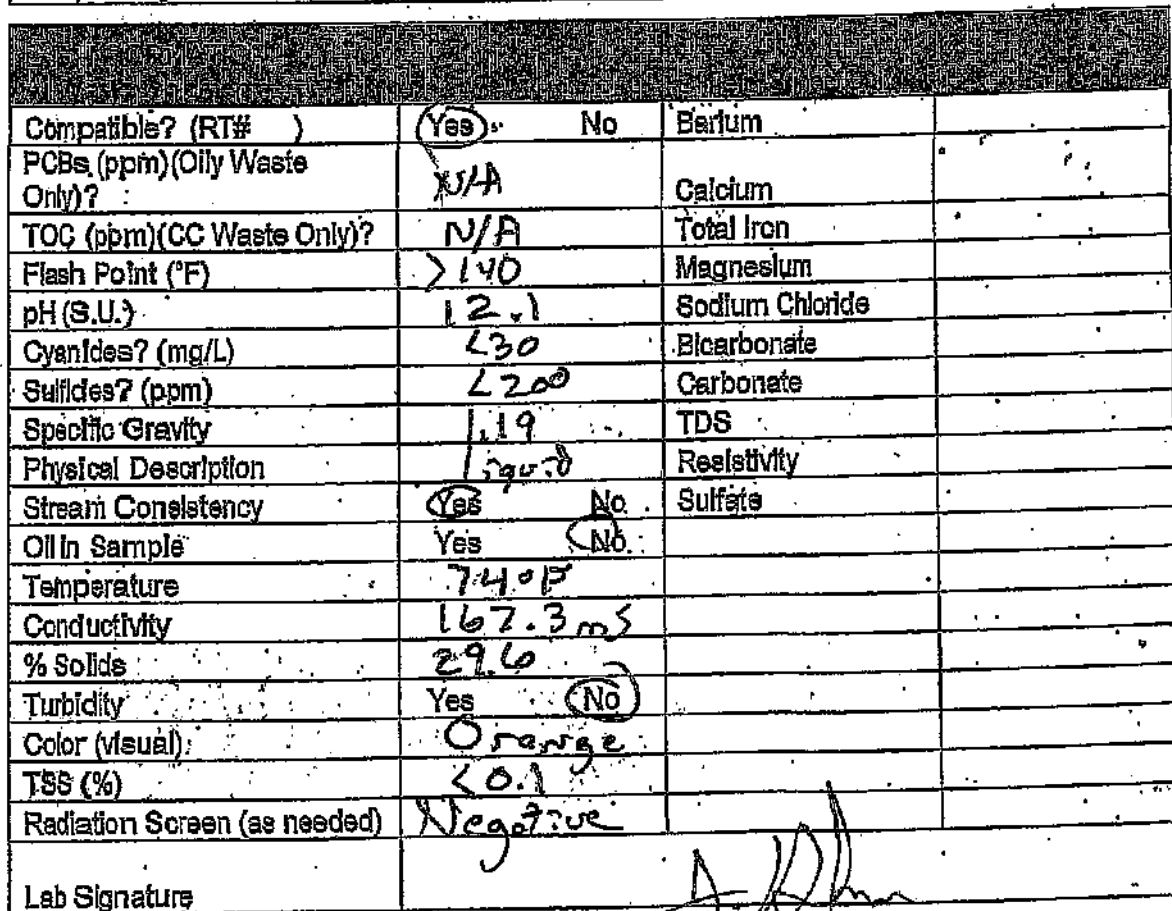 Compatible? (RT# ) Yes No Barium
PCBs (ppm)(Oily Waste
Only)? N/A Calcium
TOC (ppm)(CC Waste Only)? N/A Total Iron
Flash Point (°F) >140 Magnesium
pH (S.U.) 12.1 Sodium Chloride
Cyanides? (mg/L) <30 Bicarbonate
Sulfides? (ppm) <200 Carbonate
Specific Gravity 1.19 TDS
Physical Description liquid Resistivity
Stream Consistency Yes No Sulfate
Oil in Sample Yes No
Temperature 74°F
Conductivity 167.3 mS
% Solids 29.6
Turbidity Yes No
Color (visual) Orange
TSS (%) <0.1
Radiation Screen (as needed) Negative
Lab Signature